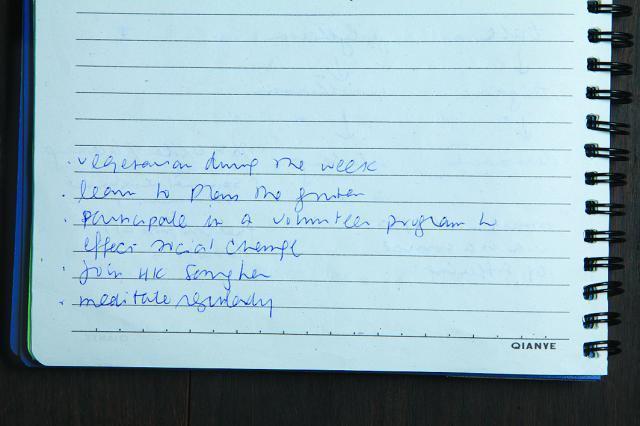 · vegetarian during the week
· learn to play the guitar
· participate in a volunteer program to
effect social change
· join HK Sangha
· meditate regularly
QIANYE